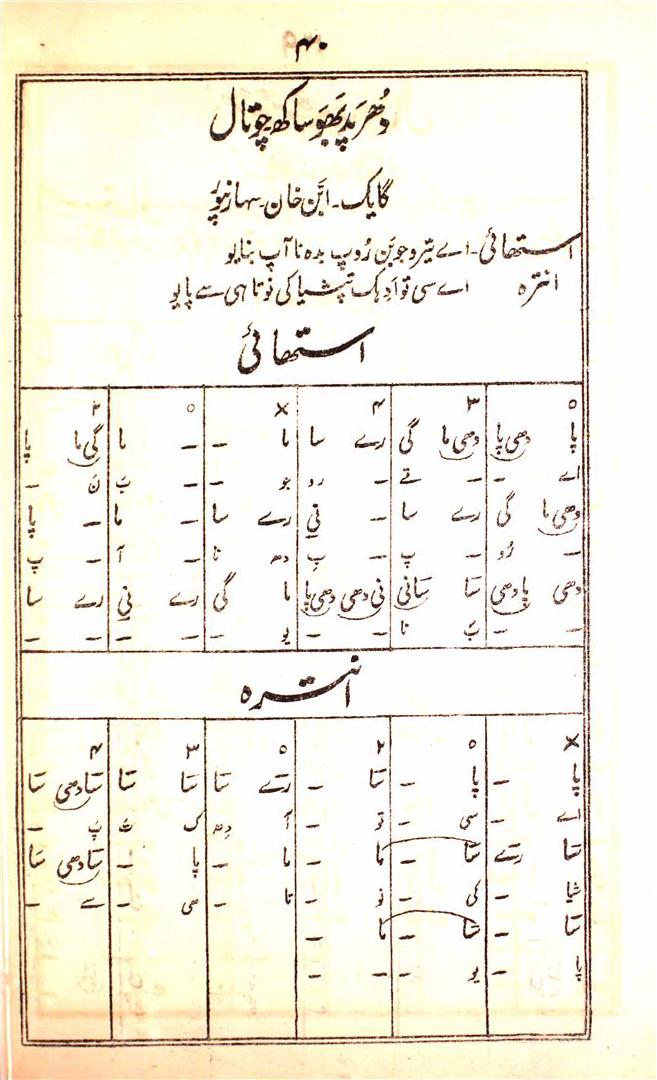 ۴۰
دُھرپد پبھوساکھ۔چوتال
گایک۔ابّن خان۔سہارنپور
استھائی۔اے تیرو جوبَن رُوپ بدہ نا آپ بنایو
انترہ اے سی تو اَدِہک تپشیا کی نوتاہی سے پایو
استھائی
۵ ۳ ۴ × ۵ ۲
پا دھی پا دھی ما گی رے سا ما – – ما گی ما پا
اے – – تے – رو جو – – بَ نَ –
دھی ما گی رے سا – نی رے سا – ما – پا
– رُو – پ – بِ دھ نا – آ – پ
دھی پا دھی سَا سَانی نی دھی دھی پا ما گی رے نی رے سا
– – بَ نا – – یو – – – – –
انترہ
× ۵ ۲ ۵ ۳ ۴
پا – پا – سَا – رَے سَا سَا سَا سَا دھی سَا
اے – سی – تو – اَ دِھ ک تَ پَ –
سَا رَے سَا – ما – ما – پا – سَا دھی سَا
شیا – کی – نو – تا – ھی – سے –
سَا – سَا – ما –
پا – یو – – –